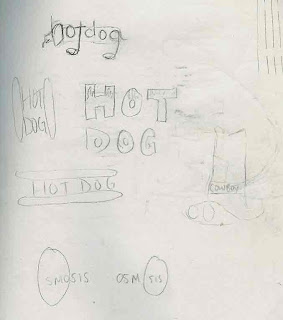 hotdog
HOT
DOG
HOT
DOG
HOT DOG
COWBOY
SMOSIS
OSMOSIS